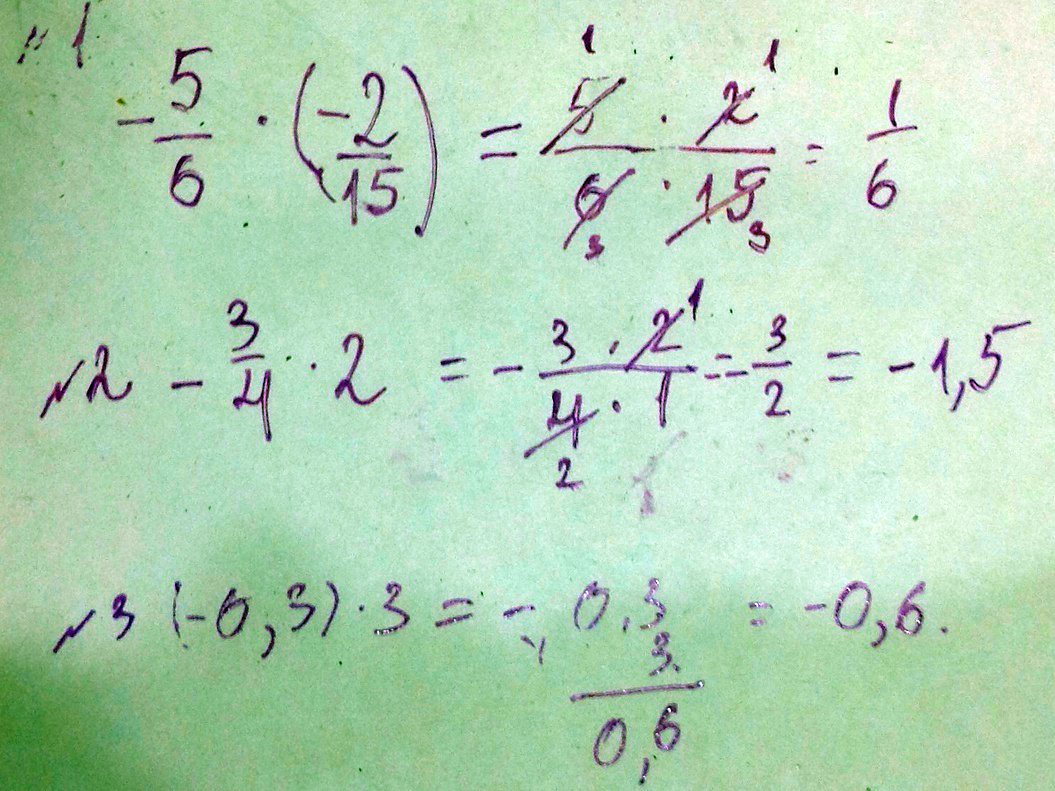 №1 -5/6 · (-2/15) = 5 1 · 2 1 / 6 3 · 15 3 = 1/6
№2 - 3/4 · 2 = - 3 · 2 1 / 4 2 · 1 = - 3/2 = -1,5
№3 (-0,3) · 3 = - 0,3 = -0,6.
3
0,6